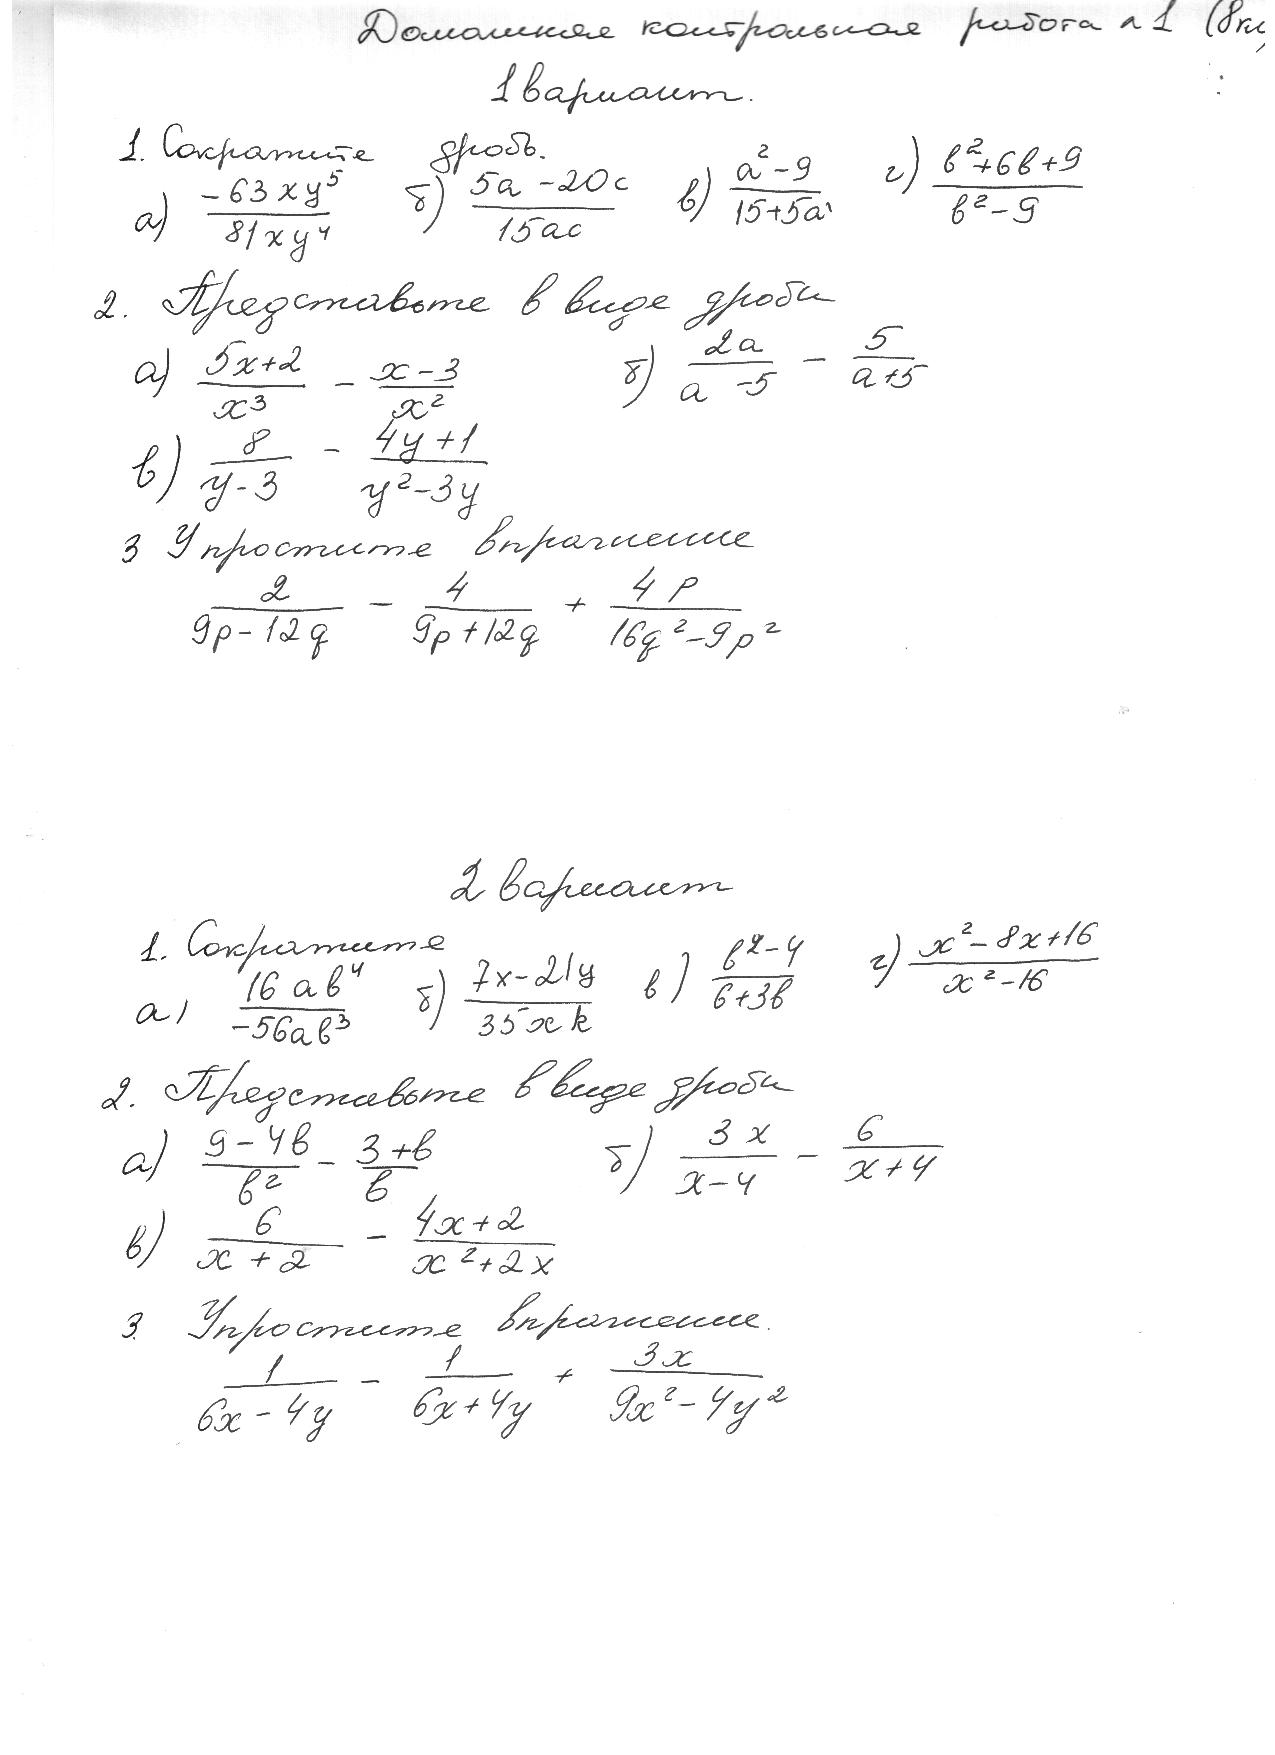 Домашняя контрольная работа №1 (8кл
1 вариант.
1. Сократите дробь.
а) -63xy⁵/81xy⁴ б) 5a-20c/15ac в) a²-9/15+5a г) b²+6b+9/b²-9
2. Представьте в виде дроби
а) 5x+2/x³ - x-3/x² б) 2a/a-5 - 5/a+5
в) 8/y-3 - 4y+1/y²-3y
3 Упростите выражение
2/9p-12q - 4/9p+12q + 4p/16q²-9p²
2 вариант
1. Сократите
а) 16ab⁴/-56ab³ б) 7x-21y/35xk в) b²-4/6+3b г) x²-8x+16/x²-16
2. Представьте в виде дроби
а) 9-4b/b² - 3+b/b б) 3x/x-4 - 6/x+4
в) 6/x+2 - 4x+2/x²+2x
3. Упростите выражение.
1/6x-4y - 1/6x+4y + 3x/9x²-4y²